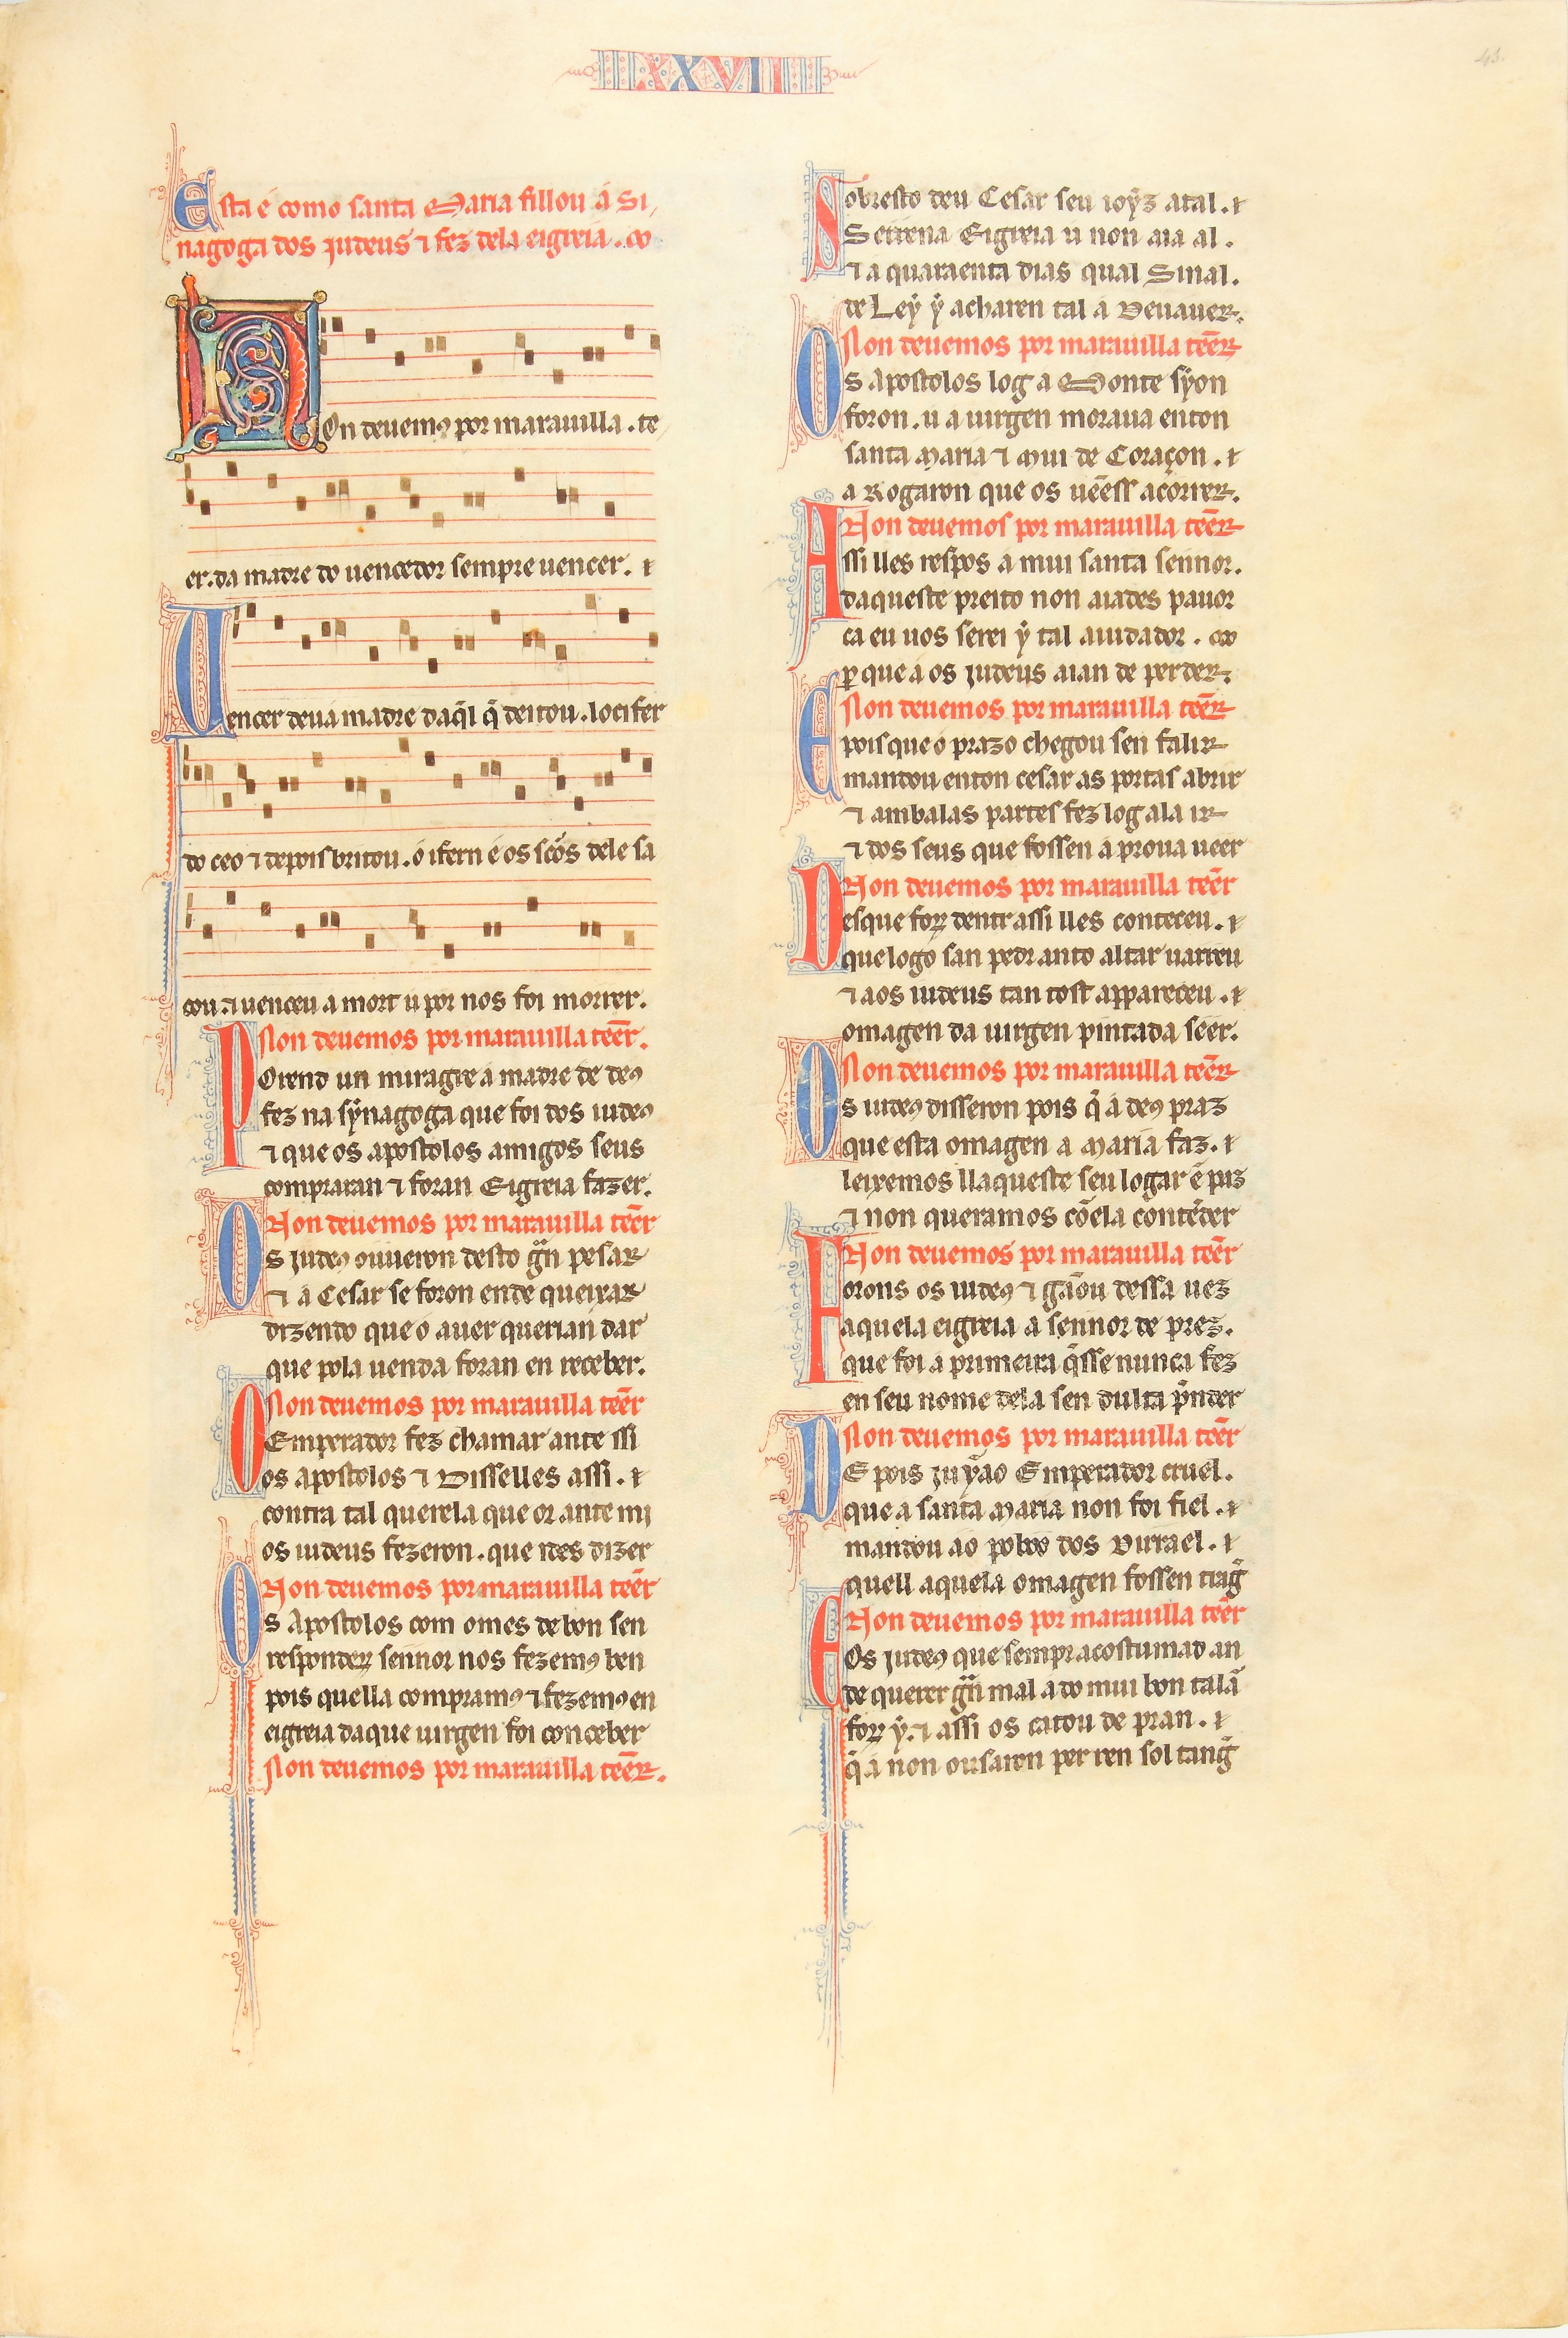 XXVII
43.
Esta é como santa Maria fillou á Si
nagoga dos judeus ⁊ fez dela eigreia.
Non deuemꝯ por marauilla. te
er. da madre do uencedor sempre uencer.
Uencer deuá madre daq̃l q̃ deitou. locifer
do ceo ⁊ depois britou. ó ifern é os scõs dele sa
cou. ⁊ uenceu a mort u por nos foi morrer.
Non deuemos por marauilla tẽer.
Porend un miragre á madre de deꝯ
fez na sẏnagoga que foi dos iudeꝯ
⁊ que os apostolos amigos seus
compraran ⁊ foran Eigreia fazer.
Non deuemos por marauilla tẽer
Os judeꝯ ouueron desto grãn pesar
⁊ a Cesar se foron ende queixar
dizendo que o auer querian dar
que pola uenda foran en receber.
Non deuemos por marauilla tẽer
O Emperador fez chamar ante ssi
os apostolos ⁊ Disselles assi.
contra tal querela que or ante mj
os iudeus fezeron. que ides dizer
Non deuemos por marauilla tẽer
Os Apostolos com omes de bon sen
responderꝝ sennor nos fezemꝯ ben
pois quella compramꝯ ⁊ fezemꝯ en
eigreia da que uirgen foi conceber
Non deuemos por marauilla tẽer.
Sobresto deu Cesar seu ioẏz atal.
Serrena Eigreia u non aia al.
⁊ a quaraenta dias qual Sinal.
de Leẏ ẏ acharen tal á Deuauer.
Non deuemos por marauilla tẽer
Os Apostolos log a Monte sẏon
foron. u a uirgen moraua enton
santa Maria ⁊ Mui de Coraçon.
a Rogaron que os uẽess acorrer.
Non deuemos por marauilla tẽer
Assi lles respos a mui santa sennor.
daqueste preito non aiades pauor
ca eu uos serei ẏ tal aiudador.
ꝑ que a os judeus aian de perder.
Non deuemos por marauilla tẽer
E pois que o prazo chegou sen falir
mandou enton cesar as portas abrir
⁊ ambalas partes fez log ala ir
⁊ dos seus que fossen á proua ueer
Non deuemos por marauilla tẽer
Des que forꝝ dentr assi lles conteceu.
que logo san pedr anto altar uarreu
⁊ aos iudeus tan tost appareceu.
omagen da uirgen pintada séer.
Non deuemos por marauilla tẽer
Os iudeꝯ disseron pois q̃ a deꝯ praz
que esta omagen a Maria faz.
leixemos llaqueste seu logar ẽ paz
⁊ non queramos cõela contẽder
Non deuemos por marauilla tẽer
Forons os iudeꝯ ⁊ gãou dessa uez
aquela eigreia a sennor de prez.
que foi a primeira q̃sse nunca fez
en seu nome dela sen dulta p̃nder
Non deuemos por marauilla tẽer
DE pois juẏão Emperador cruel.
que a santa Maria non foi fiel.
mandou ao poboo dos Dirrael.
quell aquela omagen fossen trag̃
Non deuemos por marauilla tẽer
E Os judeꝯ que sempr acostumad an
de querer grãn mal a do mui bon talã
forꝝ ẏ. ⁊ assi os catou de pran.
q̃ a non ousaron per ren sol tang̃